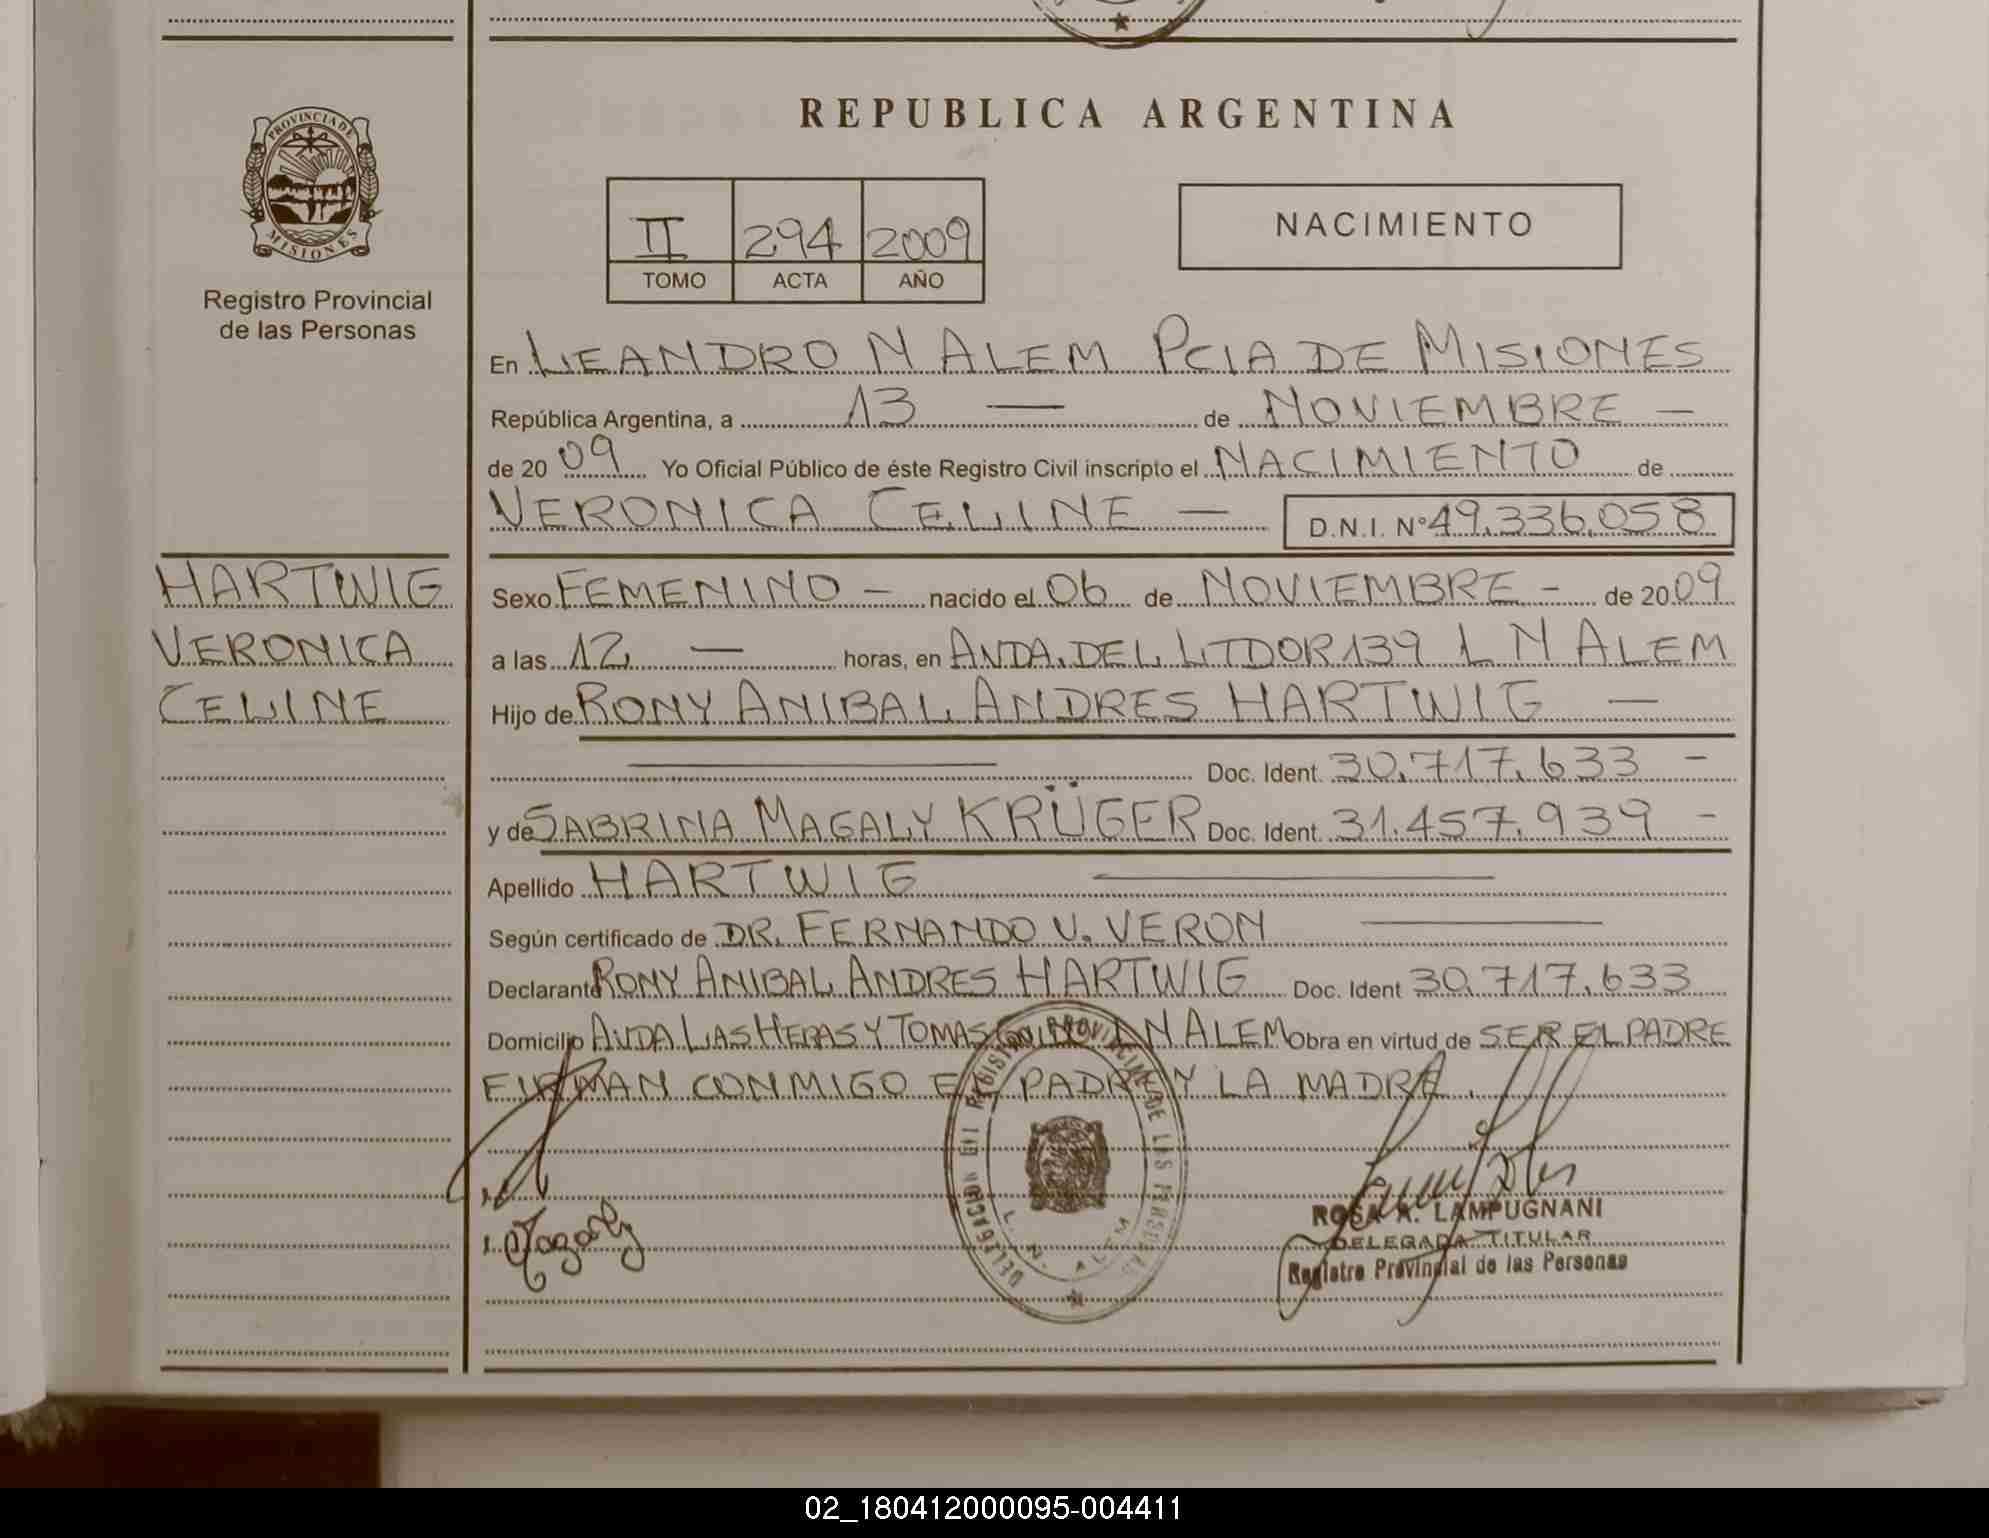 REPUBLICA ARGENTINA
PROVINCIA DE
MISIONES
Registro Provincial
de las Personas
II 294 2009
TOMO ACTA AÑO
NACIMIENTO
En LEANDRO N ALEM PCIA DE MISIONES
República Argentina, a 13 — de NOVIEMBRE —
de 2009 Yo Oficial Público de éste Registro Civil inscripto el NACIMIENTO de
VERONICA CELINE — D.N.I. Nº 49.336.058
HARTWIG
VERONICA
CELINE
Sexo FEMENINO — nacido el 06 de NOVIEMBRE - de 2009
a las 12 — horas, en AVDA. DEL LTDOR 139 L N ALEM
Hijo de RONY ANIBAL ANDRES HARTWIG —
Doc. Ident. 30.717.633 -
y de SABRINA MAGALY KRÜGER Doc. Ident. 31.457.939 -
Apellido HARTWIG
Según certificado de DR. FERNANDO V. VERON
Declarante RONY ANIBAL ANDRES HARTWIG Doc. Ident 30.717.633
Domicilio AVDA LAS HERAS Y TOMAS L N ALEM Obra en virtud de SER EL PADRE
FIRMAN CONMIGO EL PADRE Y LA MADRE.
DELEGACION DEL REGISTRO PROVINCIAL DE LAS PERSONAS
L. N. ALEM
Magaly
ROSA A. LAMPUGNANI
DELEGADA TITULAR
Registro Provincial de las Personas
02_180412000095-004411